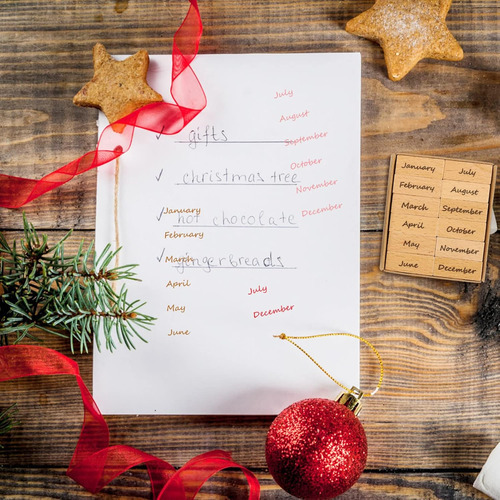 July
August
✓ gifts
September
October
✓ christmas tree
November
December
✓ hot chocolate
January
February
✓ gingerbreads
March
April
May
June
July
December
January July
February August
March September
April October
May November
June December